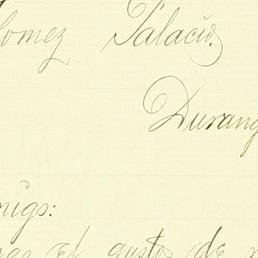 Gomez Palacio.
Durang
migo:
el gusto de